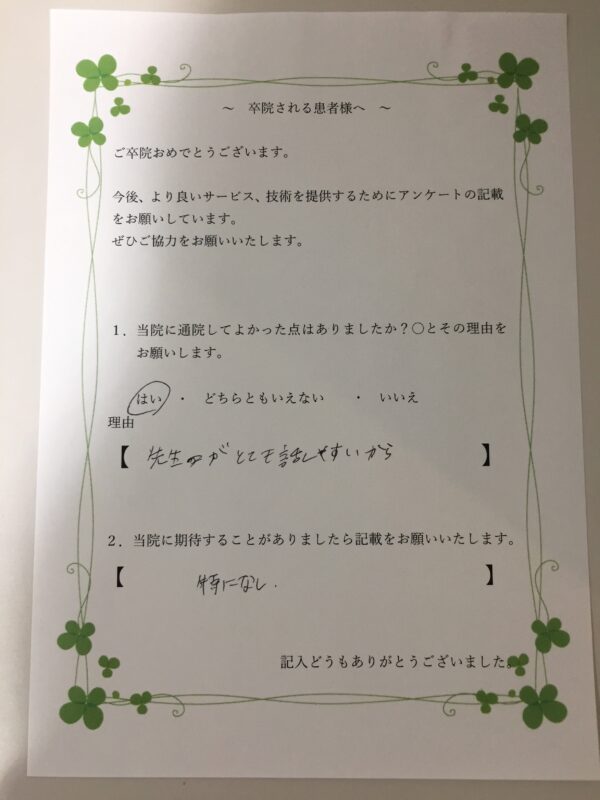 ～　卒院される患者様へ　～
ご卒院おめでとうございます。
今後、より良いサービス、技術を提供するためにアンケートの記載
をお願いしています。
ぜひご協力をお願いいたします。
１．当院に通院してよかった点はありましたか？〇とその理由を
お願いします。
はい　・　どちらともいえない　　・　いいえ
理由
【 先生がとても話しやすいから 】
２．当院に期待することがありましたら記載をお願いいたします。
【 特になし. 】
記入どうもありがとうございました。